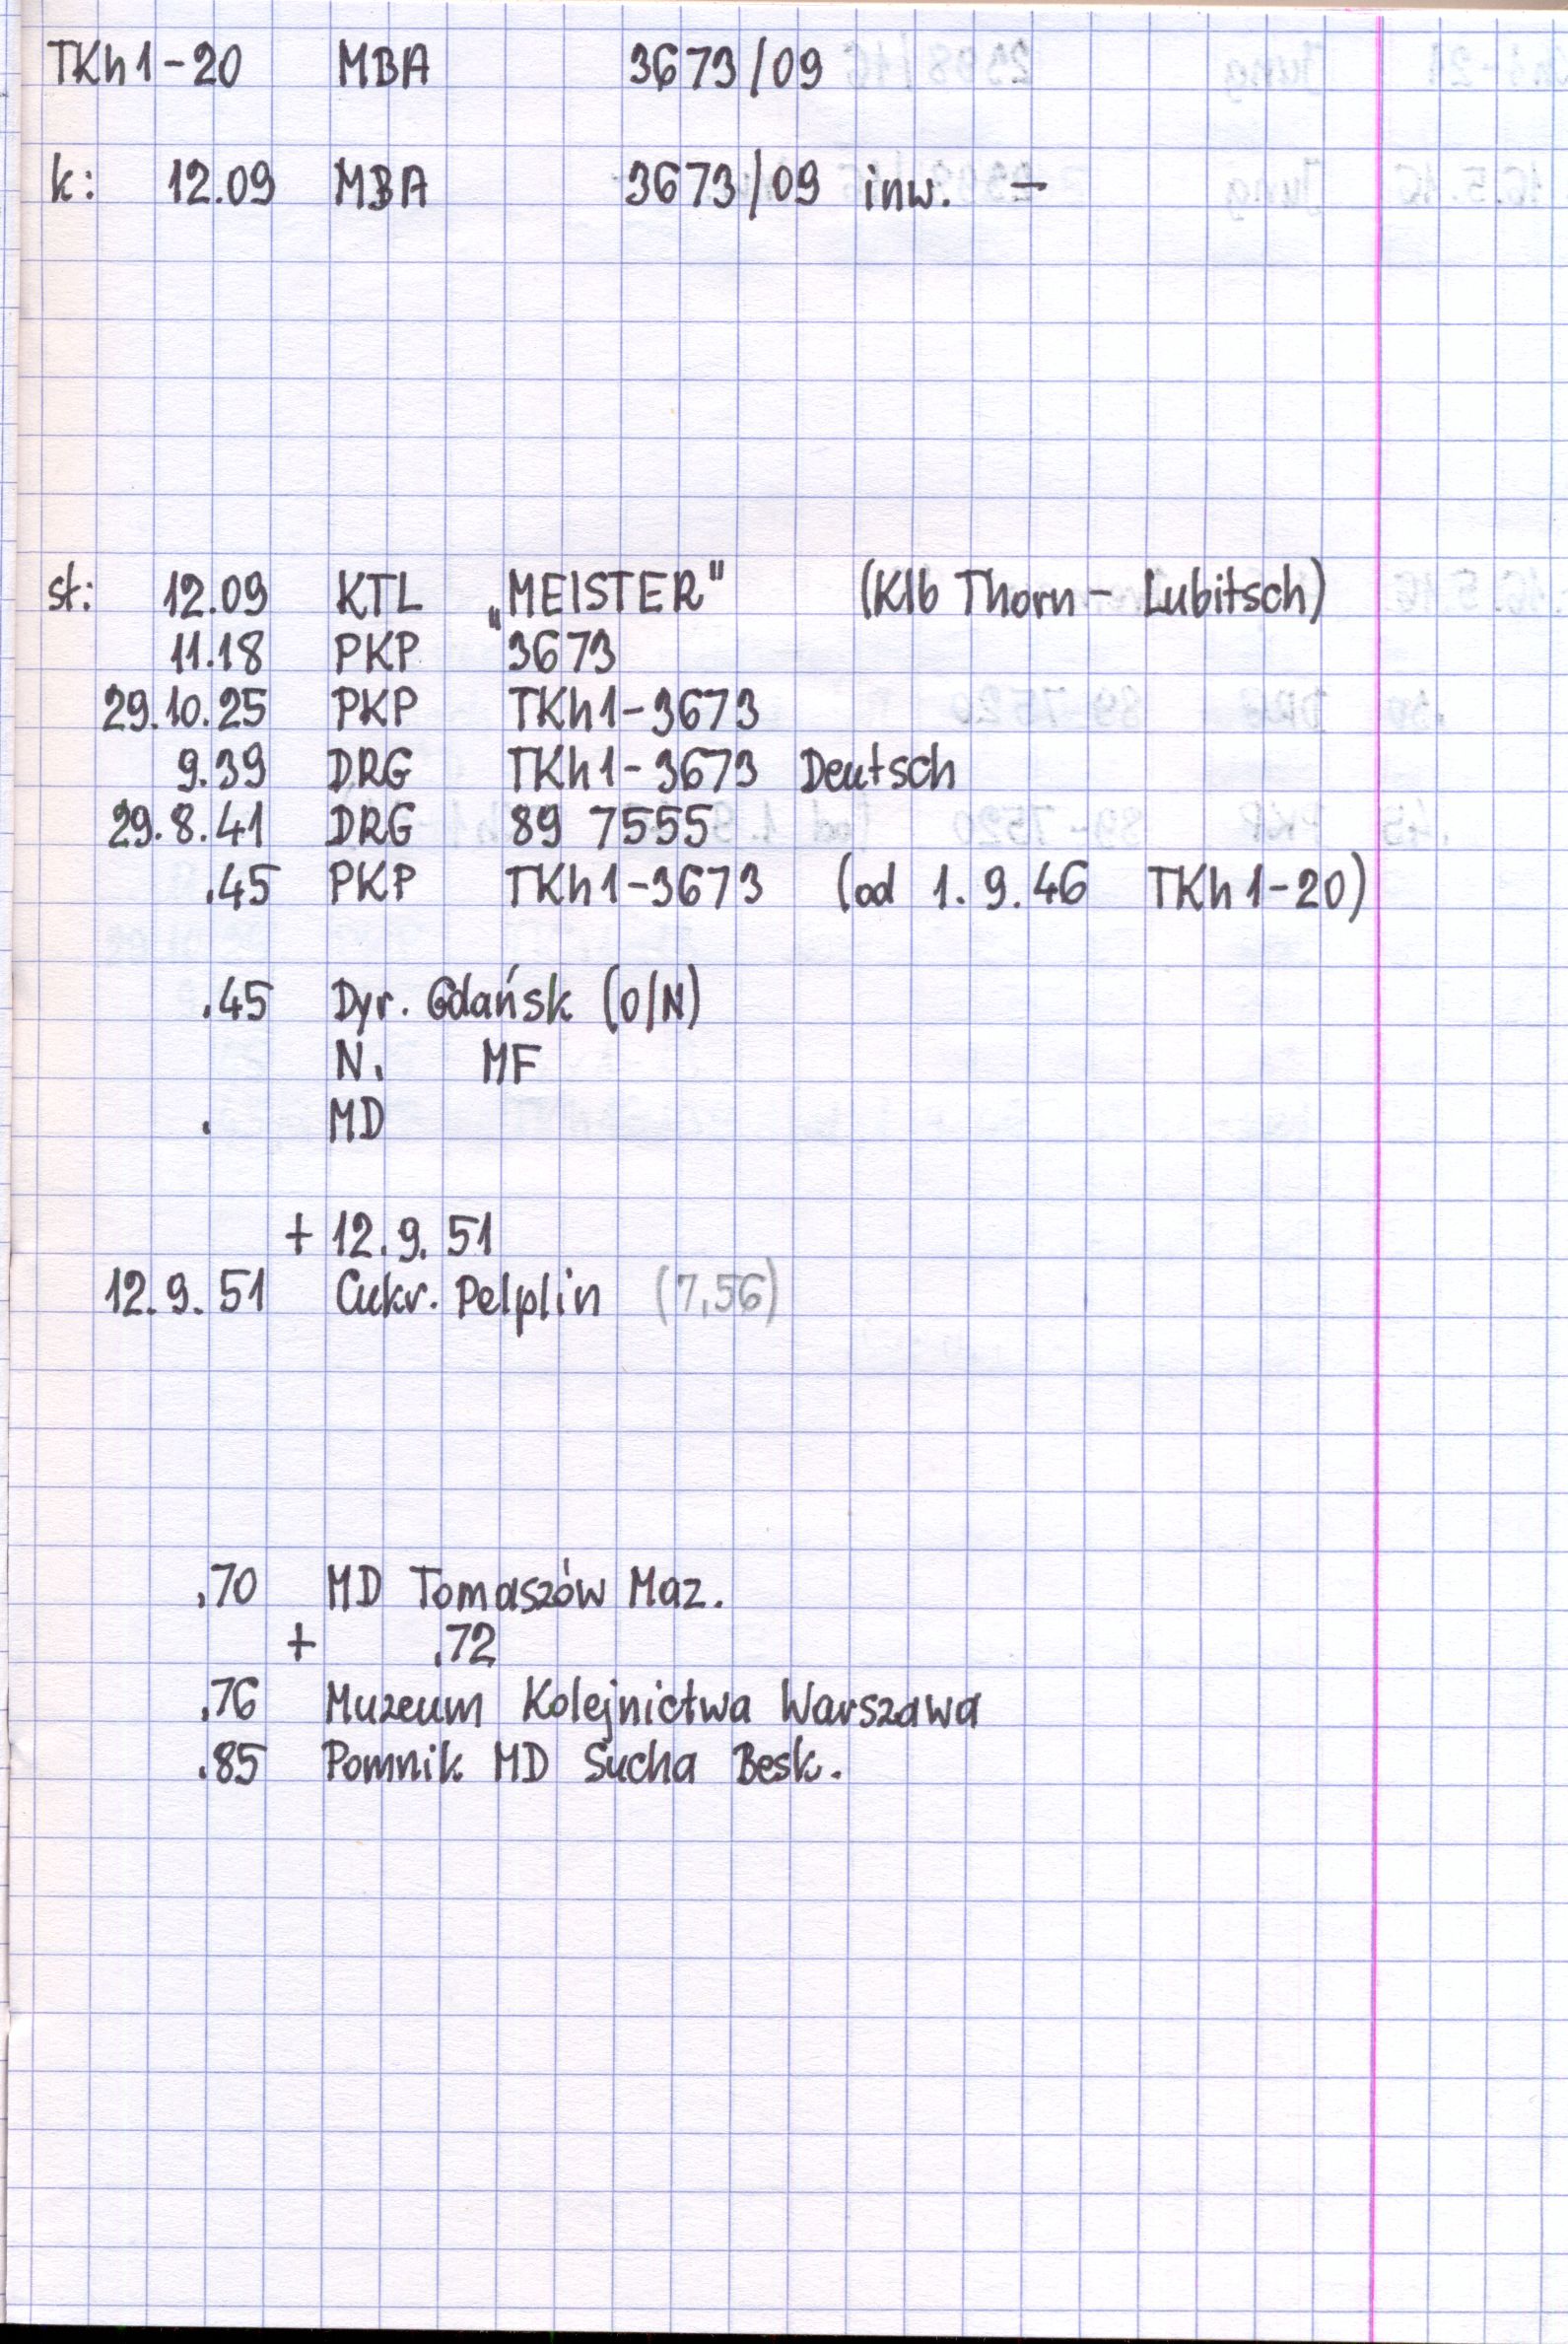 TKh1-20 MBA 3673/09
k: 12.09 MBA 3673/09 inw. -
st: 12.09 KTL „MEISTER" (Klb Thorn - Lubitsch)
11.18 PKP 3673
29.10.25 PKP TKh1-3673
9.39 DRG TKh1-3673 Deutsch
29.8.41 DRG 89 7555
.45 PKP TKh1-3673 (od 1.9.46 TKh1-20)
.45 Dyr. Gdańsk (O/N)
N. MF
. MD
+ 12.9.51
12.9.51 Cukr. Pelplin (7,56)
.70 MD Tomaszów Maz.
+ .72
.76 Muzeum Kolejnictwa Warszawa
.85 Pomnik MD Sucha Besk.